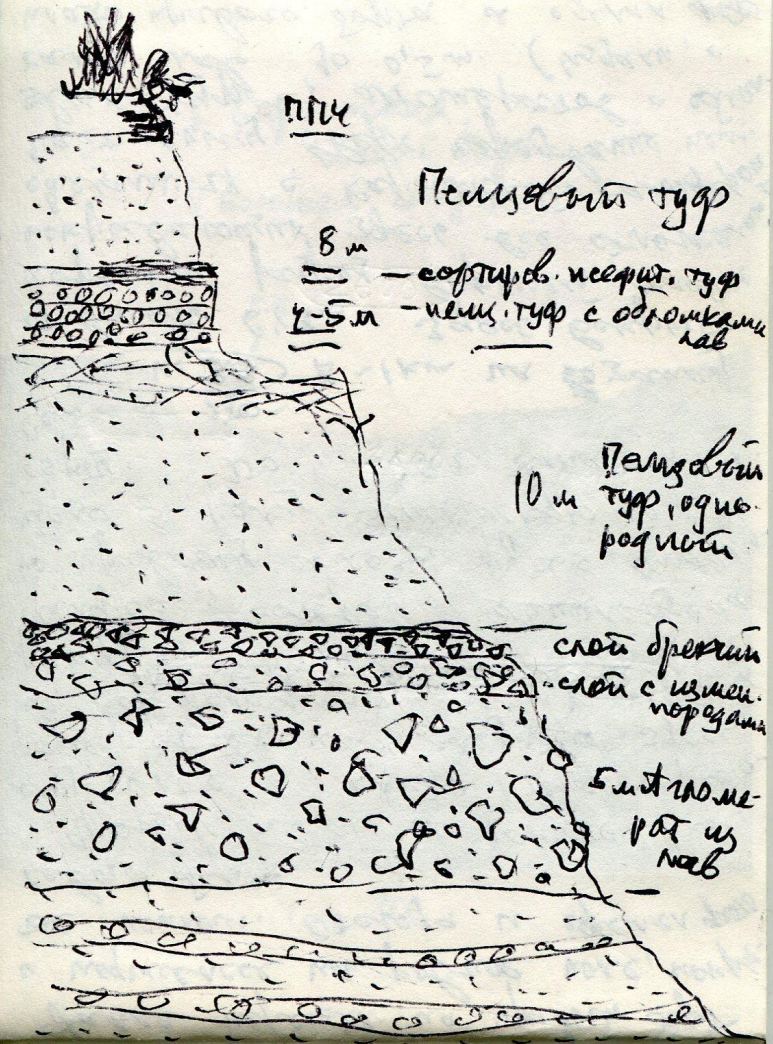 ППЧ
Пелцовый туф
8 м
— сортиров. псефит. туф
4-5 м — пелц. туф с обломками
лав
Пелцовый
10 м туф, одно-
родный
слой брекчий
слой с измен.
породами
5 м Агломе-
рат из
лав